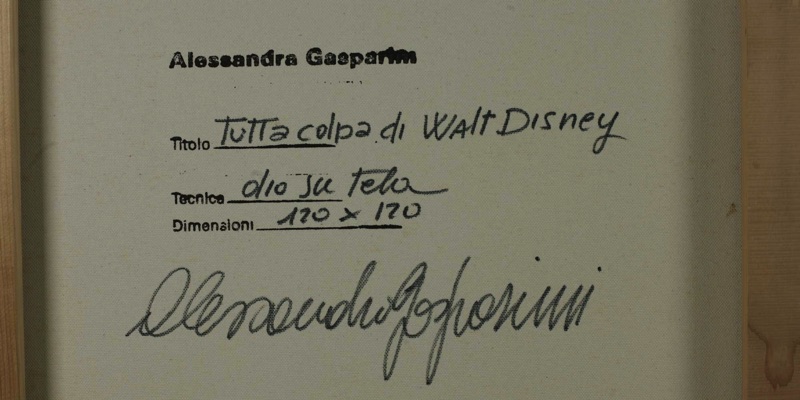 Alessandra Gasparini
Titolo Tutta colpa di Walt Disney
Tecnica olio su tela
Dimensioni 120 x 120
Alessandra Gasparini